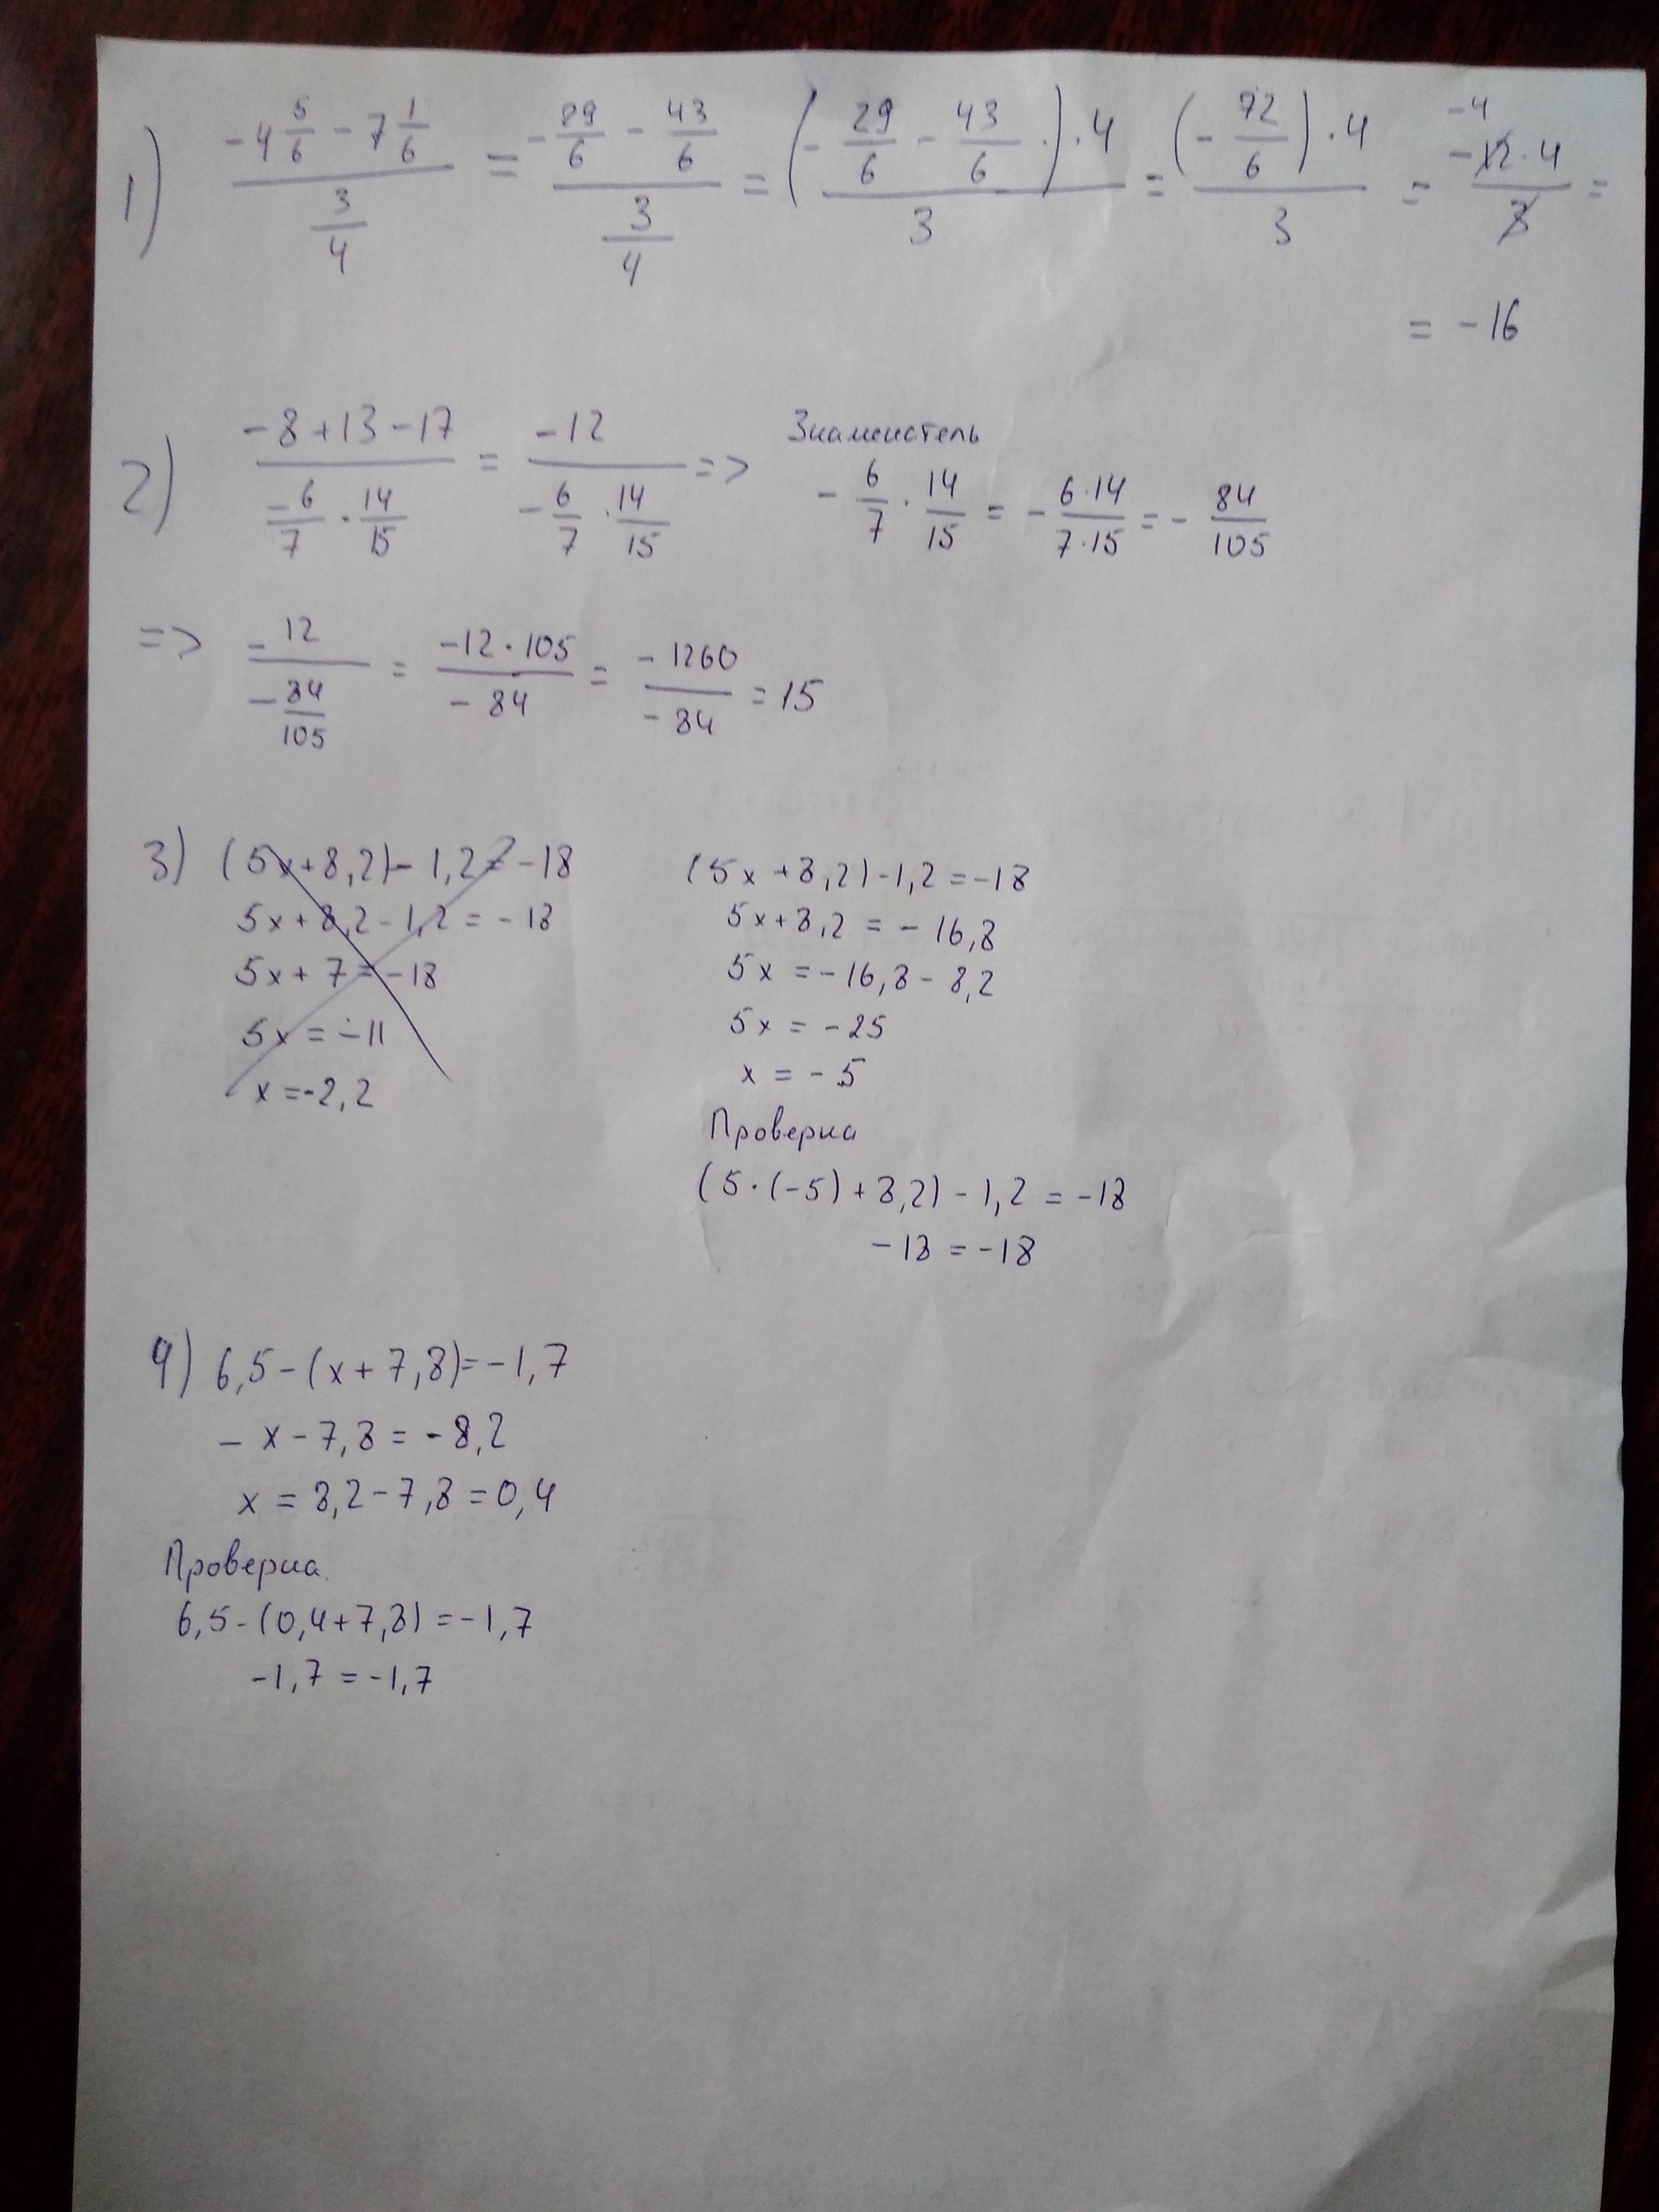 1) (-4 5/6 - 7 1/6)/(3/4) = (-29/6 - 43/6)/(3/4) = ((-29/6 - 43/6 ·) · 4)/3 = ((-72/6) · 4)/3 = -4 (-12 · 4)/3 =
= -16
2) (-8+13-17)/(-6/7 · 14/15) = -12/(-6/7 · 14/15) => Знаменатель
-6/7 · 14/15 = -(6·14)/(7·15) = -84/105
=> -12/(-84/105) = (-12·105)/(-84) = -1260/-84 = 15
3) (5x+8,2)-1,2=-18
5x+8,2-1,2=-18
5x+7=-18
5x=-11
x=-2,2
(5x+8,2)-1,2=-18
5x+8,2=-16,8
5x=-16,8-8,2
5x=-25
x=-5
Проверка
(5·(-5)+8,2)-1,2=-18
-18=-18
4) 6,5-(x+7,8)=-1,7
-x-7,8=-8,2
x=8,2-7,8=0,4
Проверка.
6,5-(0,4+7,8)=-1,7
-1,7=-1,7